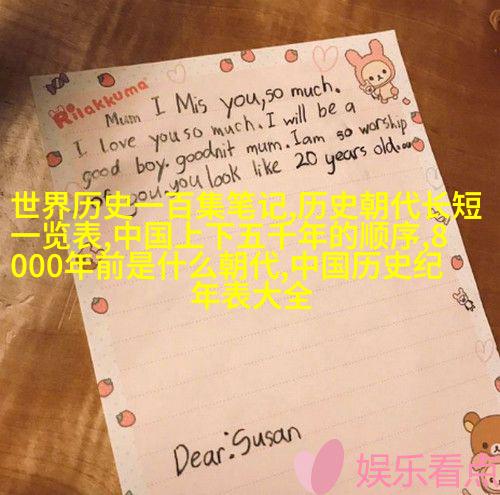 Rilakkuma
Mum I Mis you,so much.
I love you so much. I will be a
good boy. goodnit mum. Iam so worship
you. you look like 20 years old.
世界历史一百集笔记,历史朝代长短
一览表,中国上下五千年的顺序,8
000年前是什么朝代,中国历史纪
年表大全
Dear:Susan
娱乐看点